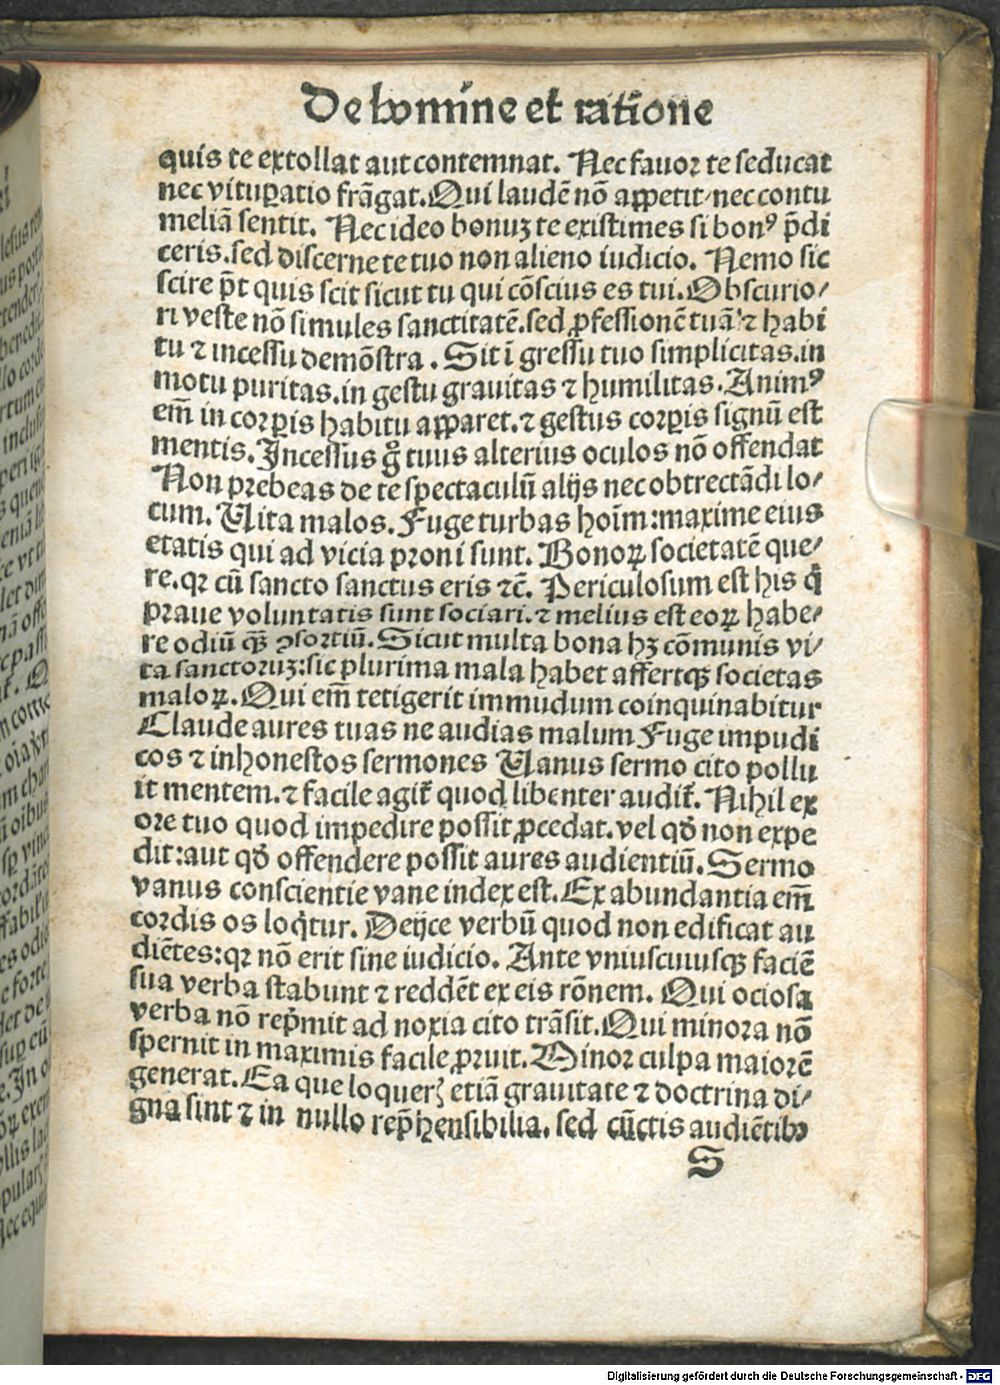 De homine et ratione
quis te extollat aut contemnat. Nec fauor te seducat
nec vituꝑatio frāgat. Qui laudē nō aꝑpetit, nec contu
meliā sentit. Nec ideo bonuꝫ te existimes si bonꝰ p̄di
ceris. sed discerne te tuo non alieno iudicio. Nemo sic
scire p̄t quis scit sicut tu qui cōscius es tui. Obscurio⸗
ri veste nō simules sanctitatē. sed ꝓfessionē tuā ⁊ habi
tu ⁊ incessu demōstra. Sit ī gressu tuo simplicitas. in
motu puritas. in gestu grauitas ⁊ humilitas. Animꝰ
em̄ in corꝑis habitu aꝑparet. ⁊ gestus corꝑis signū est
mentis. Incessus gͦ tuus alterius oculos nō offendat
Non prebeas de te spectaculū alijs nec obtrectādi lo⸗
cum. Uita malos. Fuge turbas hoīm: maxime eius
etatis qui ad vicia proni sunt. Bonoꝝ societatē que⸗
re. qꝛ cū sancto sanctus eris ⁊c̄. Periculosum est his qͥ
praue voluntatis sunt sociari. ⁊ melius est eoꝝ habe⸗
re odiū qꝫ̄ ꝯsortiū. Sicut multa bona hꝫ cōmunis vi⸗
ta sanctoruꝫ: sic plurima mala habet affertqꝫ societas
maloꝝ. Qui em̄ tetigerit immudum coinquinabitur
Claude aures tuas ne audias malum Fuge impudi
cos ⁊ inhonestos sermones Uanus sermo cito pollu
it mentem. ⁊ facile agit̄ quod libenter audit̄. Nihil ex
ore tuo quod impedire possit ꝓcedat. vel qđ non expe
dit: aut qđ offendere possit aures audientiū. Sermo
vanus conscientie vane index est. Ex abundantia em̄
cordis os loqͥtur. Deijce verbū quod non edificat au
diētes: qꝛ nō erit sine iudicio. Ante vniuscuiusqꝫ faciē
sua verba stabunt ⁊ reddēt ex eis rōnem. Qui ociosa
verba nō rep̄mit ad noxia cito trāsit. Qui minora nō
spernit in maximis facile ꝓruit. Minor culpa maiorē
generat. Ea que loquerꝭ etiā grauitate ⁊ doctrina di⸗
gna sint ⁊ in nullo rep̄hensibilia. sed cūctis audiētibꝰ
S
Digitalisierung gefördert durch die Deutsche Forschungsgemeinschaft - DFG